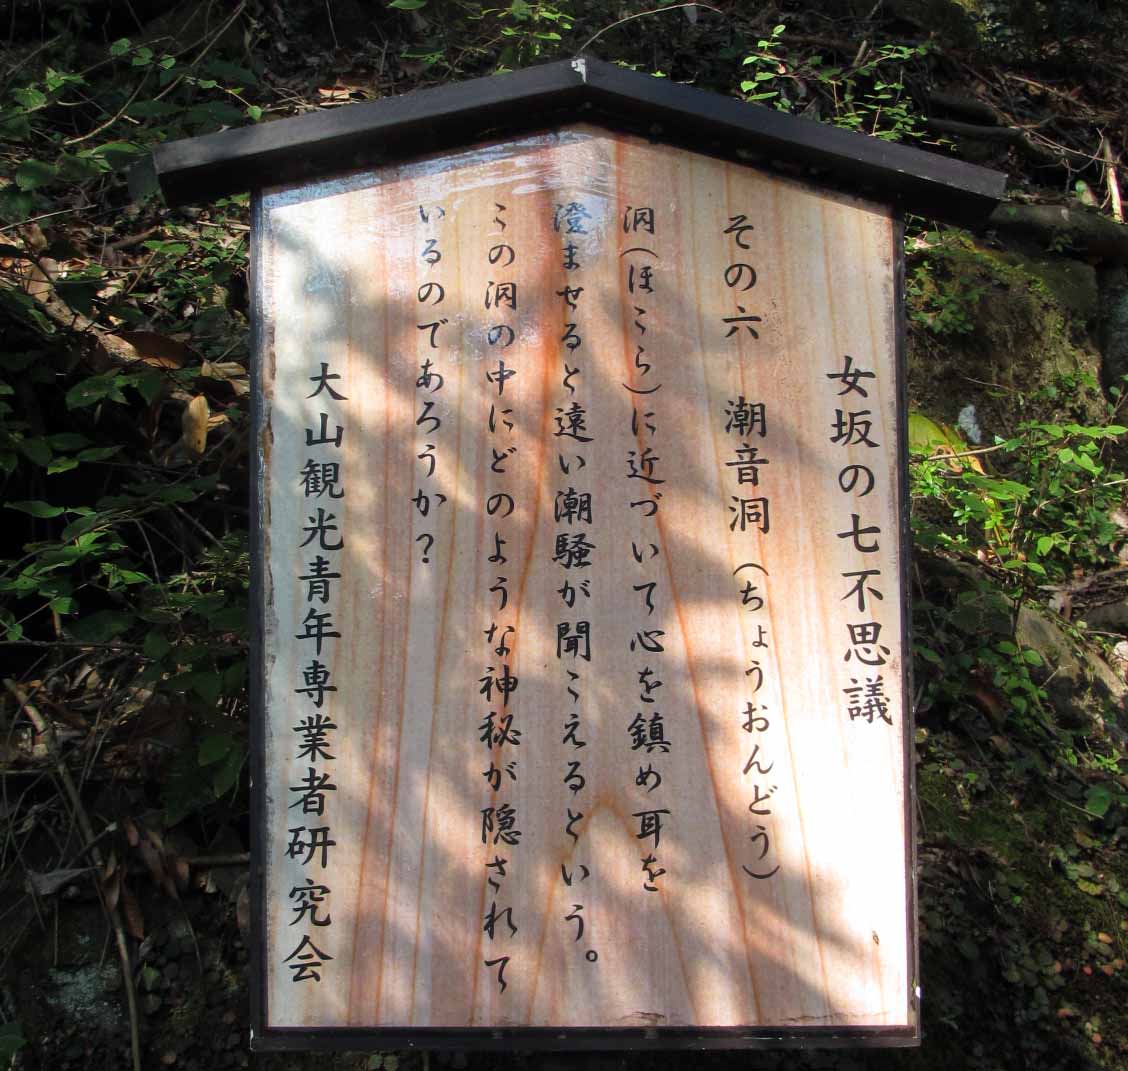 女坂の七不思議
その六 潮音洞（ちょうおんどう）
洞（ほこら）に近づいて心を鎮め耳を
澄ませると遠い潮騒が聞こえるという。
この洞の中にどのような神秘が隠されて
いるのであろうか？
大山観光青年専業者研究会